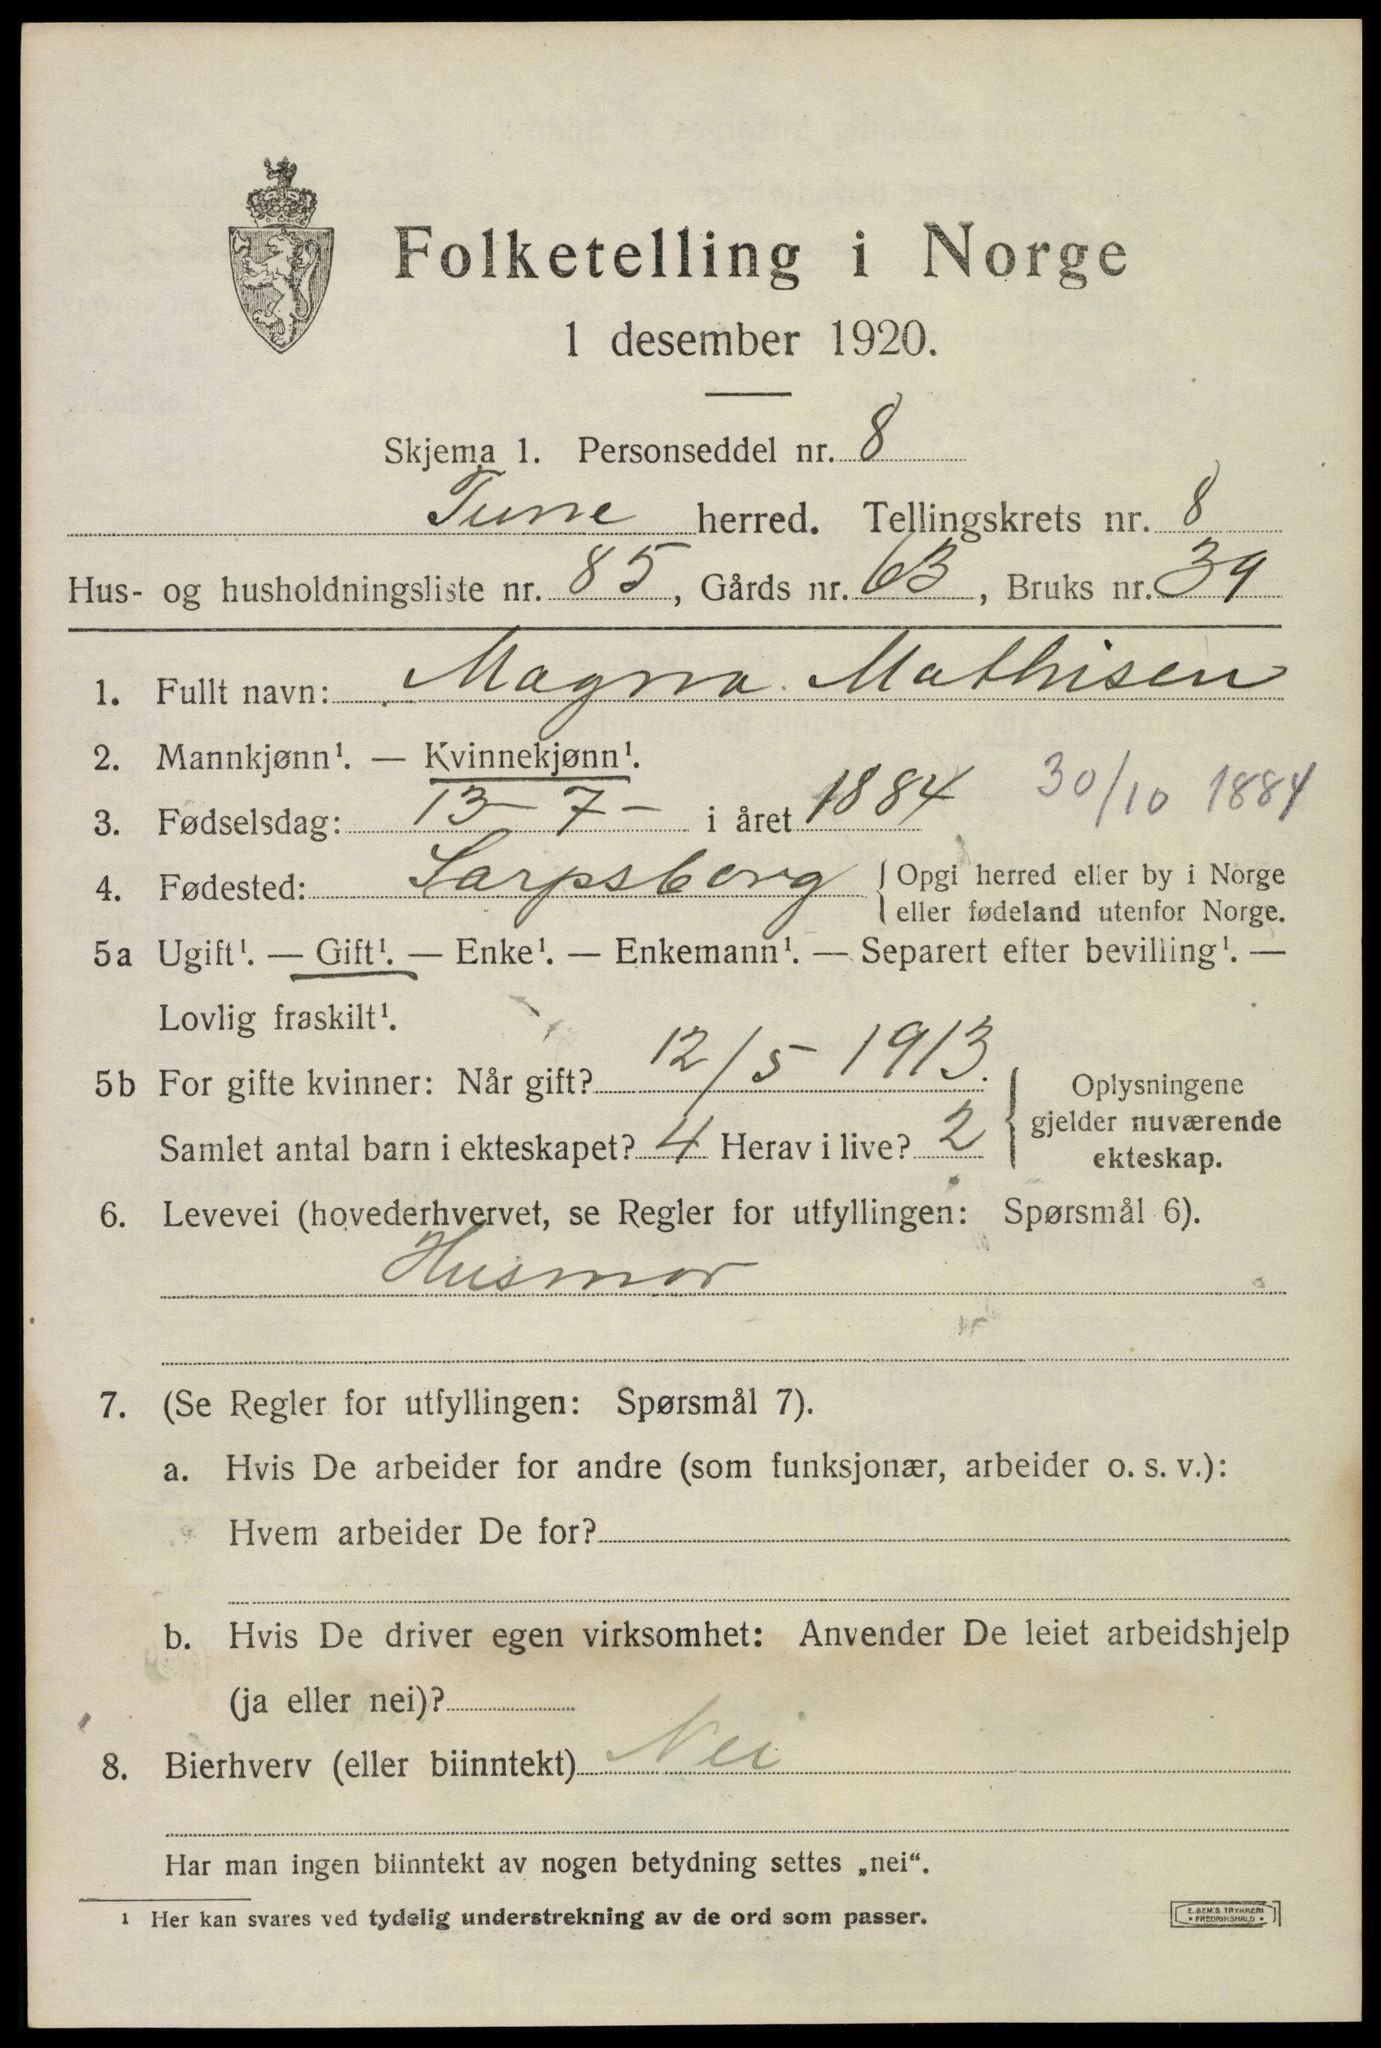 Folketelling i Norge
1 desember 1920.
Skjema 1. Personseddel nr. 8
Tune herred. Tellingskrets nr. 8
Hus- og husholdningsliste nr. 85, Gårds nr. 63, Bruks nr. 39
1. Fullt navn: Magna Mathisen
2. Mannkjønn¹. — Kvinnekjønn¹.
3. Fødselsdag: 13-7- i året 1884 30/10 1884
4. Fødested: Sarpsborg { Opgi herred eller by i Norge
eller fødeland utenfor Norge.
5a Ugift¹. — Gift¹. — Enke¹. — Enkemann¹. — Separert efter bevilling¹. —
Lovlig fraskilt¹.
5b For gifte kvinner: Når gift? 12/5 1913.
Samlet antal barn i ekteskapet? 4 Herav i live? 2
{ Oplysningene
gjelder nuværende
ekteskap.
6. Levevei (hovederhvervet, se Regler for utfyllingen: Spørsmål 6).
Husmor
7. (Se Regler for utfyllingen: Spørsmål 7).
a. Hvis De arbeider for andre (som funksjonær, arbeider o. s. v.):
Hvem arbeider De for?
b. Hvis De driver egen virksomhet: Anvender De leiet arbeidshjelp
(ja eller nei)?
8. Bierhverv (eller biinntekt) Nei
Har man ingen biinntekt av nogen betydning settes „nei“.
¹ Her kan svares ved tydelig understrekning av de ord som passer.
E. SEM'S TRYKKERI
• FREDRIKSHALD •